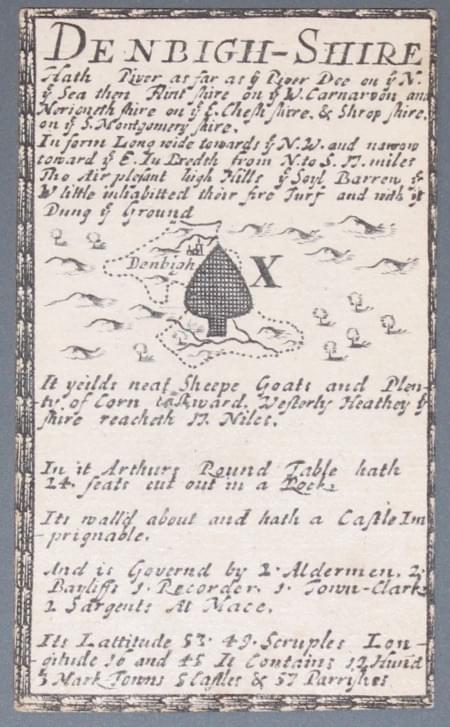 DENBIGH-SHIRE
Hath River as far as ẏ River Dee on ẏ N.
ẏ Sea then Flint shire on ẏ W. Carnarvon and
Merioneth shire on ẏ E. Chesh shire, & Shrop shire,
on ẏ S. Montgomery shire.
In form Long wide towards ẏ N.W. and narrow
toward ẏ E. In Bredth from N. to S. 17. miles
The Air plesant high Hills ẏ Soyl Barren ẏ
W little inhabitted their fire Turf and with ẏ
Dung ẏ Ground
Denbigh
X
It yeilds neat Sheepe Goats and Plen-
ty of Corn Eastward. Westerly Heathey ẏ
shire reacheth 17. Miles.
In it Arthurs Round Table hath
24. seats cut out in a Rock.
Its wall'd about and hath a Castle Im
-prignable.
And is Governd by 2. Aldermen, 2.
Bayliffs 1. Recorder. 1. Town-Clark
2 Sargents At Mace.
Its Lattitude 53. 49. Scruples Lon-
gitude 16 and 45 It Contains 12 Hund
3 Mark Towns 5 Castles & 57 Parryhes